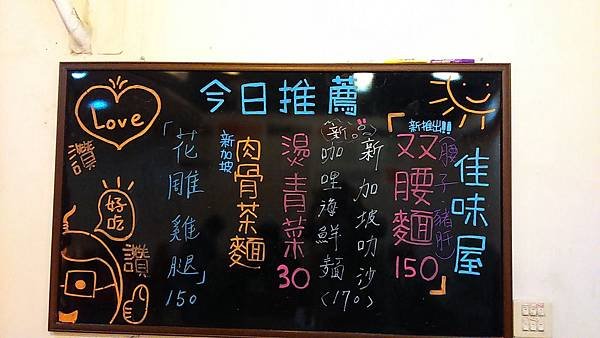 今日推薦
佳味屋
新推出!!
双腰麵150
腰子 豬肝
新加坡叻沙
新咖哩海鮮麵(170)
燙青菜30
新加坡
肉骨茶麵
「花雕雞腿」150
Love
讚
好吃
讚